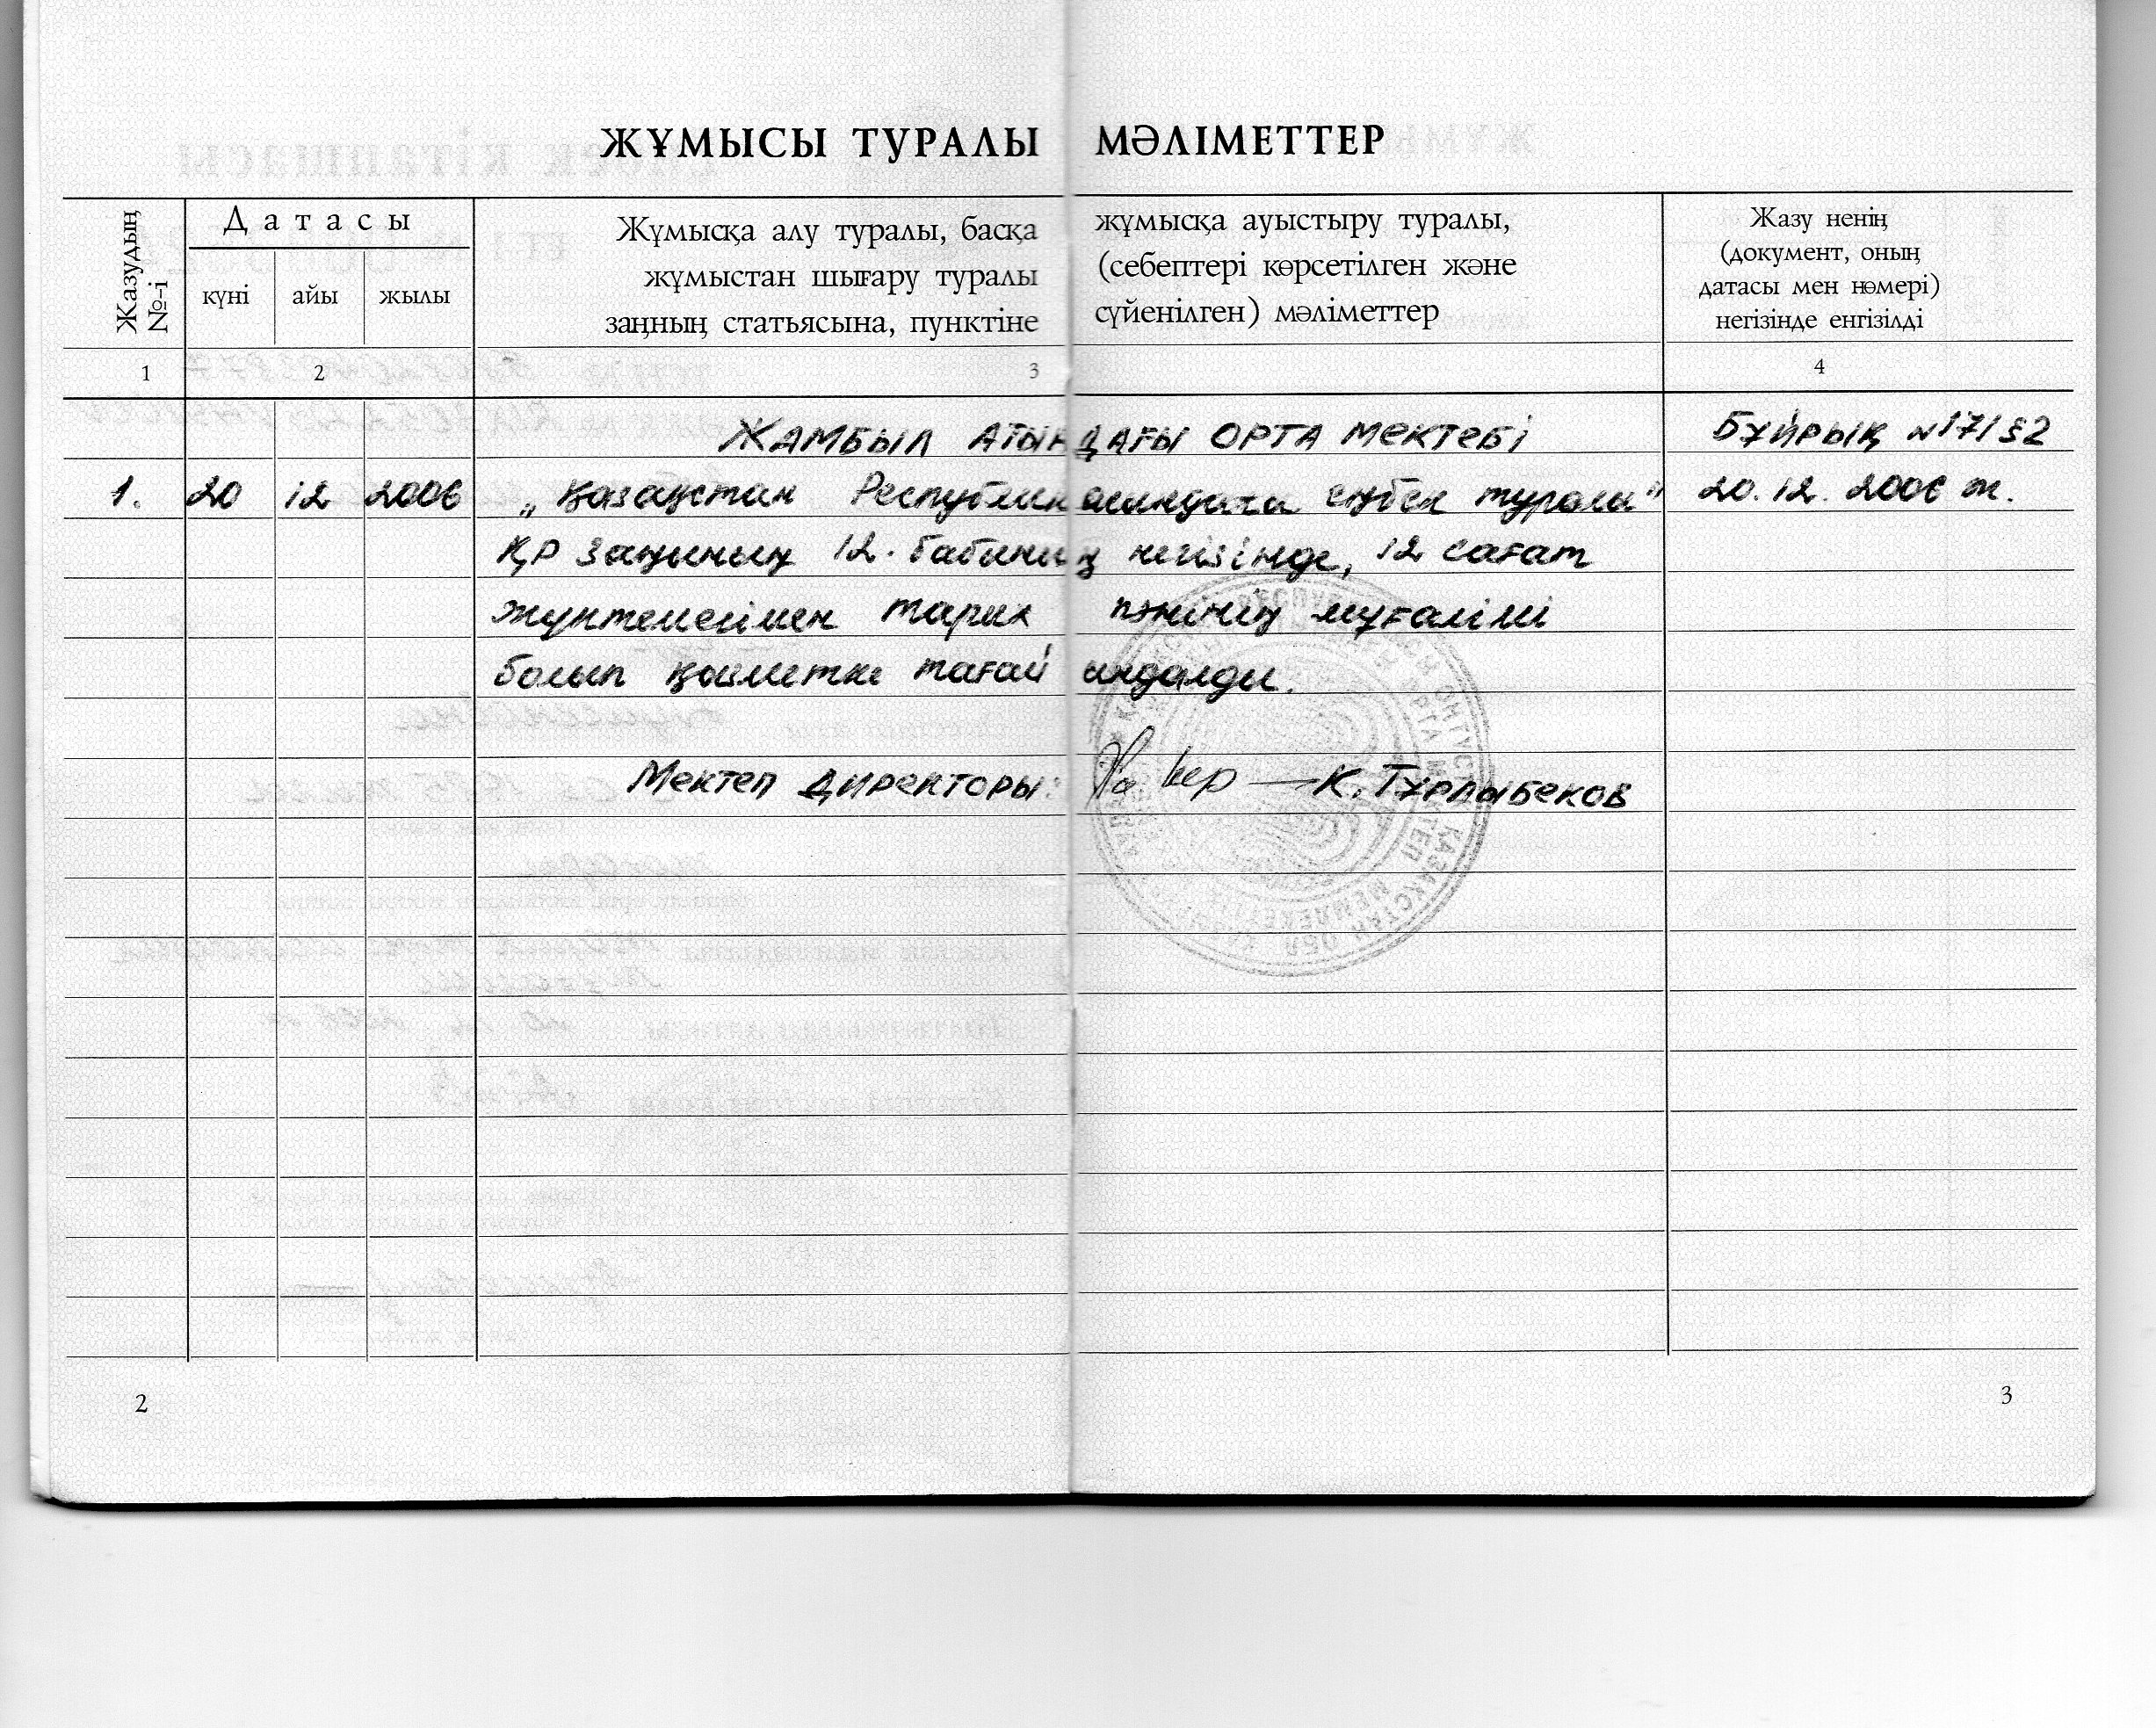 ЖҰМЫСЫ ТУРАЛЫ МӘЛІМЕТТЕР
Жазудың №-і
Датасы
күні айы жылы
Жұмысқа алу туралы, басқа жұмысқа ауыстыру туралы,
жұмыстан шығару туралы (себептері көрсетілген және
заңның статьясына, пунктіне сүйенілген) мәліметтер
Жазу ненің
(документ, оның
датасы мен нөмері)
негізінде енгізілді
1 2 3 4
ЖАМБЫЛ АТЫНДАҒЫ ОРТА МЕКТЕБІ БҰЙРЫҚ №17/§2
1. 20 12 2006 „Қазақстан Республикасындағы еңбек туралы" 20.12.2006 ж.
ҚР Заңының 12. бабының негізінде, 12 сағат
жүктемесімен тарих пәнінің мұғалімі
болып қызметке тағайындалды.
Мектеп директоры: К. Тұрлыбеков
2
3